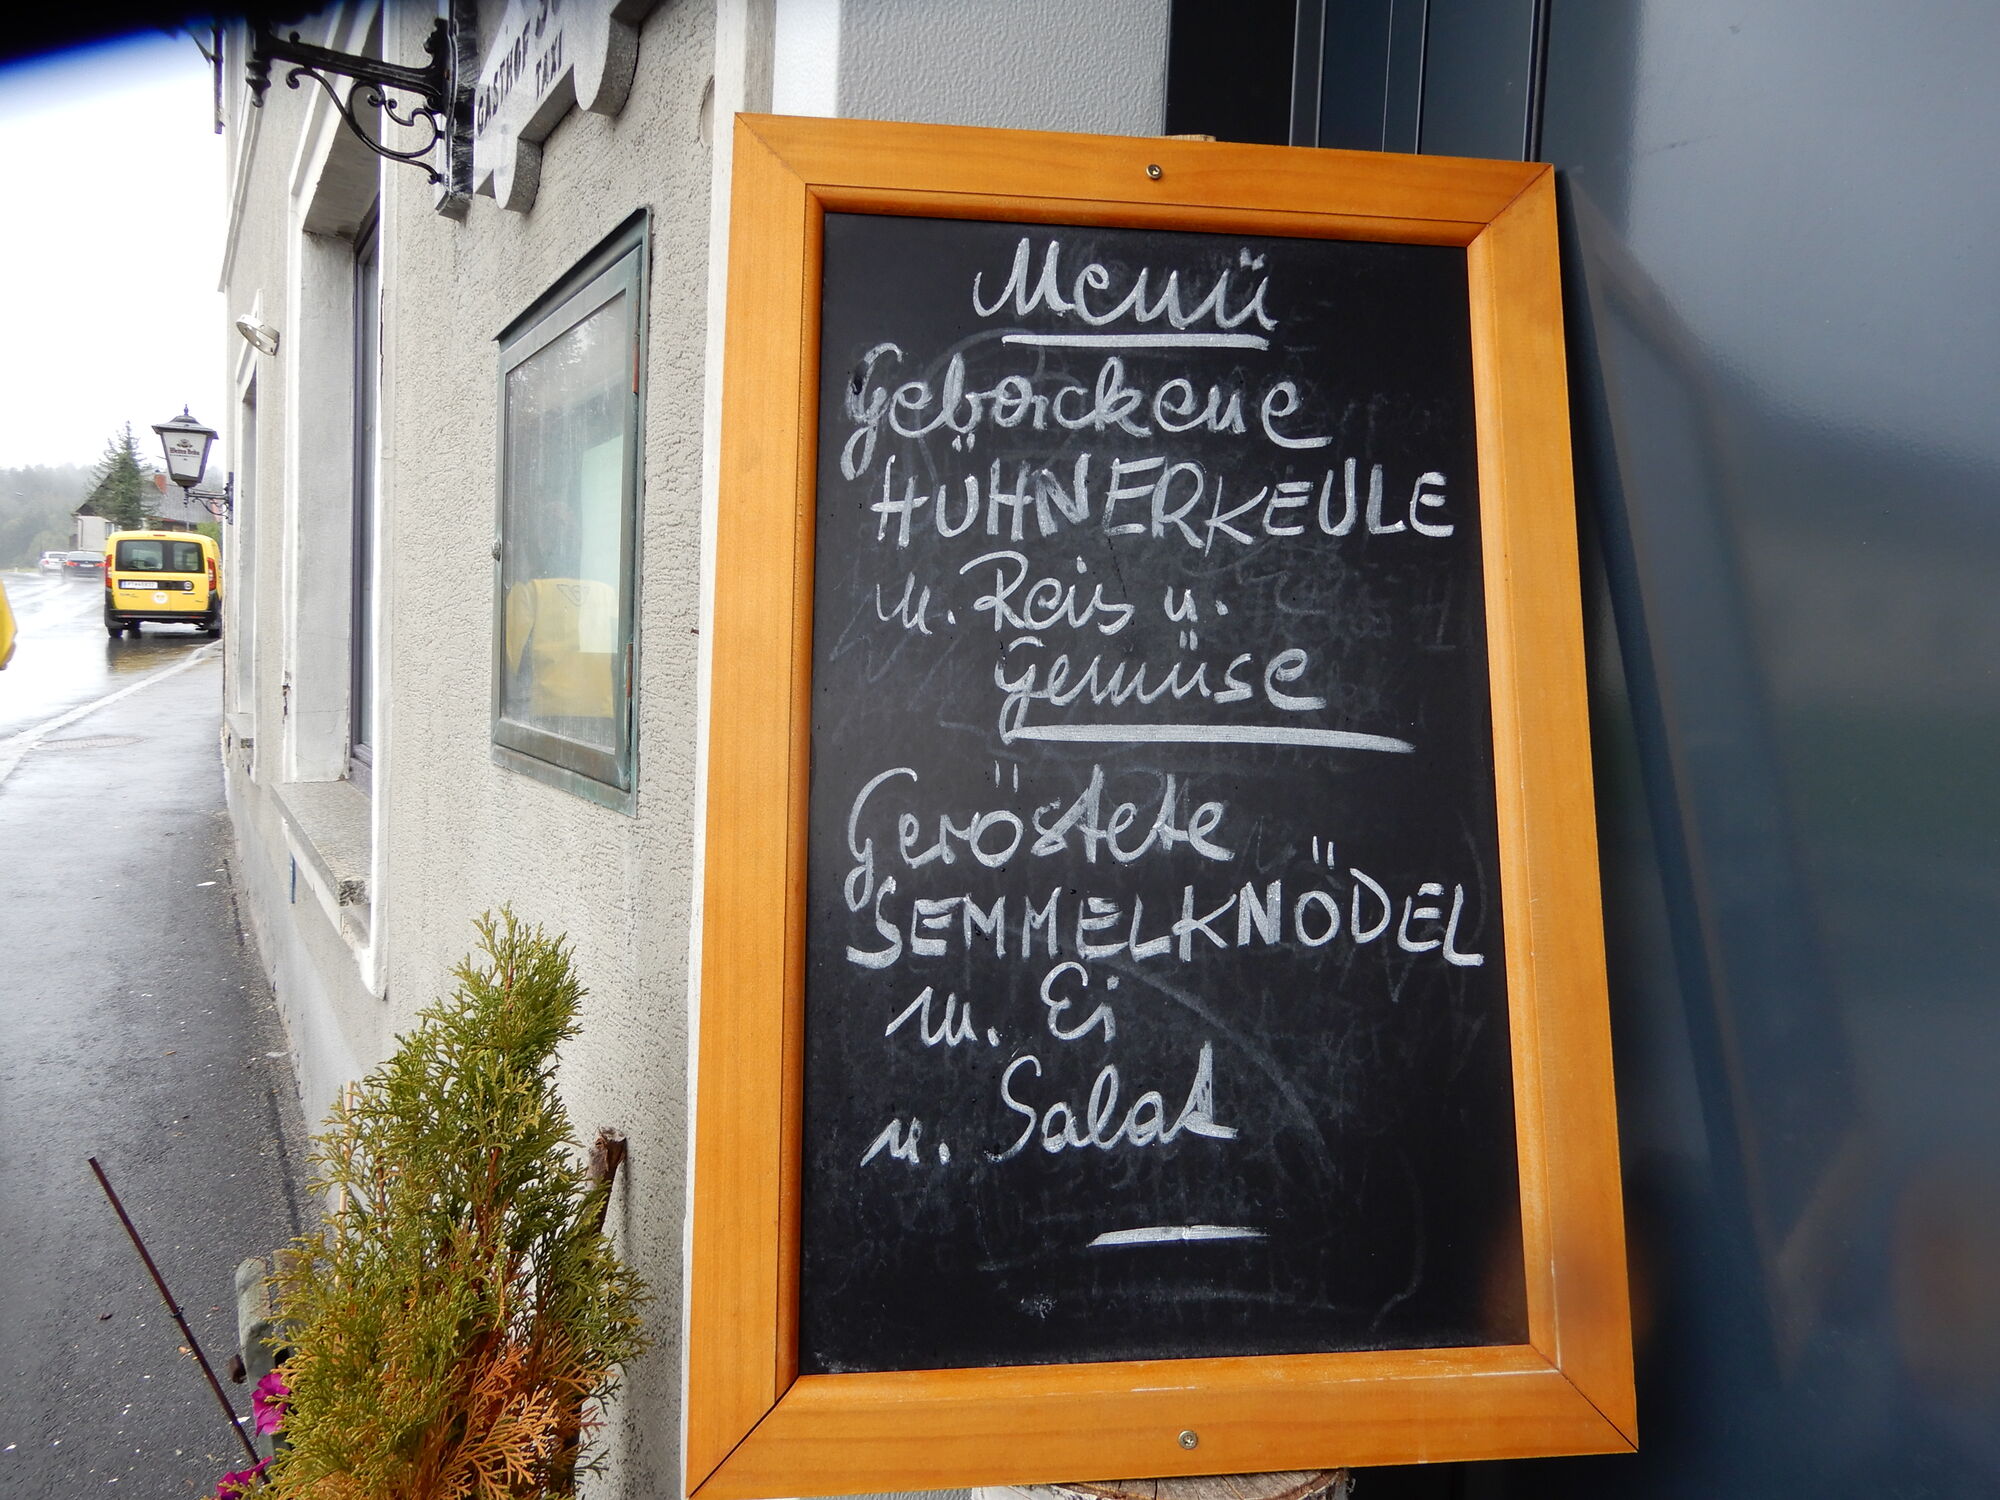 GASTHOF
TAXI
Menü
Geborckene
HÜHNERKEULE
m. Reis u.
Gemüse
Geröstete
SEMMELKNÖDEL
m. Ei
u. Salat